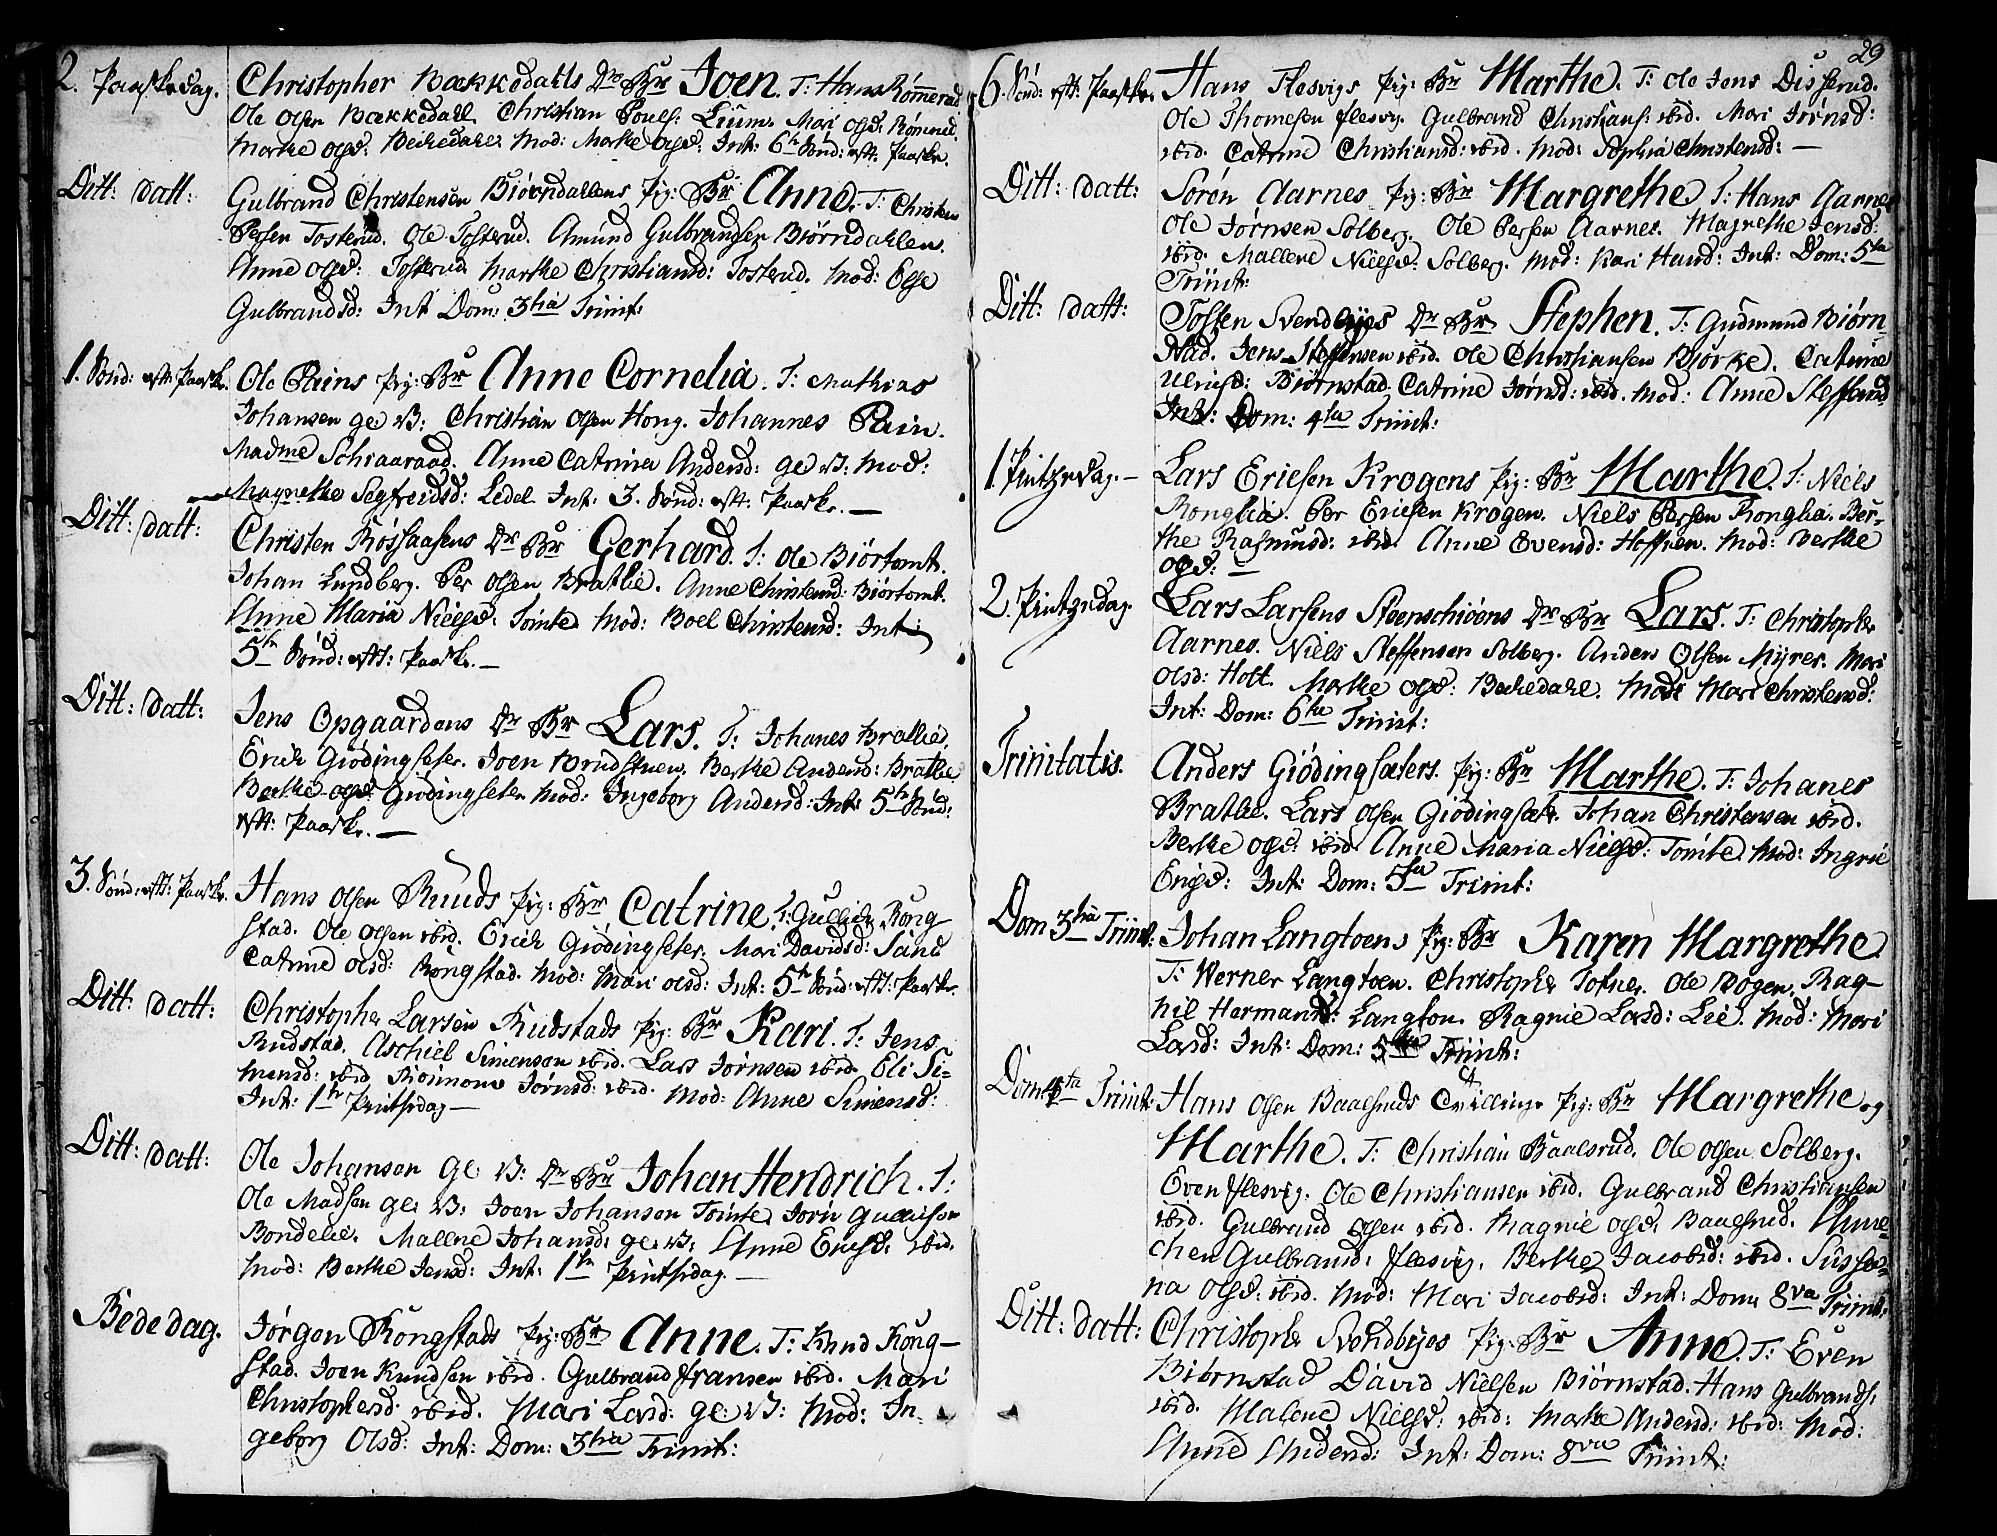 2. Paaskedag. Christopher Bækkedahls Dr: Br: Joen. T: Hans Rømmerud
Ole Olsen Bækkedahl Christian Pouls: Lium. Mari Olsd: Rømmerud
Marthe Olsd: Beckedahl. Mod: Marthe Olsd: Int: 6te Sønd: eft: Paaske.
Ditt: datt: Gulbrand Christensen Biørndallens Pig: Br: Anne. T: Christen
Persen Tosterud. Ole Tosterud. Amund Gulbrandsen Biørndahlen.
Anne Olsd: Tosterud Marthe Christiansd: Tosterud. Mod: Else
Gulbrandsd: Int Dom: 3tia Trinit:
1. Sønd: eft: Paaske. Ole Pains Pig: Br: Anne Cornelia. T: Mathias
Johansen gl: V: Christian Olsen Hong. Johannes Pain.
Madme Schraaraad. Anne Catrina Andersd: gl: V: Mod:
Magnethe Segfreidsd: Ledel Int: 3. Sønd: eft: Paaske. —
Ditt: datt: Christen Røssaasens Dr: Br: Gerhard. T: Ole Biørtomt.
Johan Lundberg. Per Olsen Bratlie. Anne Christensd: Biørtomt.
Anne Maria Nielsd: Tomte Mod: Boel Christensd: Int:
5te Sønd: eft: Paaske. —
Ditt: datt: Jens Opgaardens Dr: Br: Lars. T: Johanes Bratlie.
Erich Giødingseter. Joen Brudstuen. Berthe Andersd: Bratlie
Berthe Olsd: Giødingseter Mod: Ingeborg Andersd: Int: 5te Sønd:
eft: Paaske. —
3. Sønd: eft: Paaske. Hans Olsen Ruuds Pig: Br: Catrine. T: Gullich Rong-
stad. Ole Olsen ibid. Erich Giødingseter. Mari Davidsd: Sand
Catrine Olsd: Rongstad. Mod: Mari Olsd: Int: 5te Sønd: eft: Paaske.
Ditt: datt: Christopher Larsen Rudstads Pig: Br: Kari. T: Jens
Rudstad. Aschiel Simensen ibid. Lars Jørnsen ibid. Eli Si-
mensd: ibid Jørnsd: ibid. Mod: Anne Simensd:
Int: 1te Pintsedag —
Ditt: datt: Ole Johansen gl: V: Dr: Br: Johan Hendrich. T:
Ole Madsen gl: V: Joen Johansen Tomte Jørn Gulichsen
Bondelie. Mallene Johansd: gl: V: Anne Ericsd: ibid.
Mod: Berthe Jensd: Int: 1te Pintsedag. —
Bededag. Jørgen Kongstads Pig: Br: Anne. T: Knud Kong-
stad. Joen Knudsen ibid. Gulbrand fransen ibid. Mari
Christophersd: ibid. Mari Larsd: gl: V: Mod: In-
geborg Olsd: Int: Dom: 3tia Trinit:
29
6. Sønd: eft: Paaske. Hans Flesvigs Pig: Br: Marthe. T: Ole Jens Disserud.
Ole Thomesen flesvig. Gulbrand Christians: ibid. Mari Jørnsd:
ibid. Catrine Christiansd: ibid. Mod: Sophia Christensd: —
Ditt: datt: Søren Aarnes Pig: Br: Margrethe T: Hans Aarnes
Ole Jørnsen Solberg. Ole Persen Aarnes. Magrethe Jensd:
ibid. Mallene Nielsd: Solberg. Mod: Kari Hansd: Int: Dom: 5ta
Trinit:
Ditt: datt: Tosten Svendbyes Dr: Br: Stephen. T: Gudmund Biørn-
stad. Jens Steffensen ibid. Ole Christiansen Biørke. Catrine
Ulrichsd: Biørnstad. Catrine Jørnsd: ibid. Mod: Anne Steffensd:
Int: Dom: 4ta Trinit:
1 Pintzedag. — Lars Ericsen Krogens Pig: Br: Marthe. T: Niels
Ronglia. Per Ericsen Krogen. Niels Persen Ronglia. Ber-
the Rasmusd: ibid. Anne Evensd: Hoffren. Mod: Berthe
Olsd: —
2. Pintzedag. Lars Larsens Steenschiøens Dr: Br: Lars. T: Christopher
Aarnes. Niels Steffensen Solberg. Anders Olsen Myrer. Mari
Olsd: Holt. Marthe Olsd: Beckedahl. Mod: Mari Christensd:
Int: Dom: 6ta Trinit:
Trinitatis. Anders Giødingsæters. Pig: Br: Marthe. T: Johanes
Bratlie. Lars Olsen Giødingsæter. Johan Christensen ibid.
Berthe Olsd: ibid. Anne Maria Nielsd: Tomte. Mod: Ingrie
Engsd: Int: Dom: 5ta Trinit:
Dom 3tia Trinit: Johan Langtoens Pig: Br: Karen Margrethe
T: Werner Langtoen. Christopher Tofner. Ole Bogen. Rag-
nil Hermansd: Langton. Ragnie Larsd: Lie. Mod: Mari
Larsd: Int: Dom: 5ta Trinit:
Dom 4ta Trinit: Hans Olsen Baalsruds Tvillinge Pig: Br: Margrethe og
Marthe. T: Christian Baalsrud. Ole Olsen Solberg.
Even flesvig. Ole Christiansen ibid. Gulbrand Christiansen
ibid. Gulbrand Olsen ibid. Magnie Olsd: Baalsrud. Anne-
chen Gulbrandsd: flesvig. Berthe Jacobsd: ibid. Susse-
na Olsd: ibid. Mod: Mari Jacobsd: Int: Dom: 8va Trinit:
Ditt: datt: Christopher Svendbyes Pig: Br: Anne. T: Even
Biørnstad David Nielsen Biørnstad. Hans Gulbrands:
ibid. Malene Nielsd: ibid: Marthe Andersd: ibid: Mod:
Anne Andersd: Int: Dom: 8va Trinit: